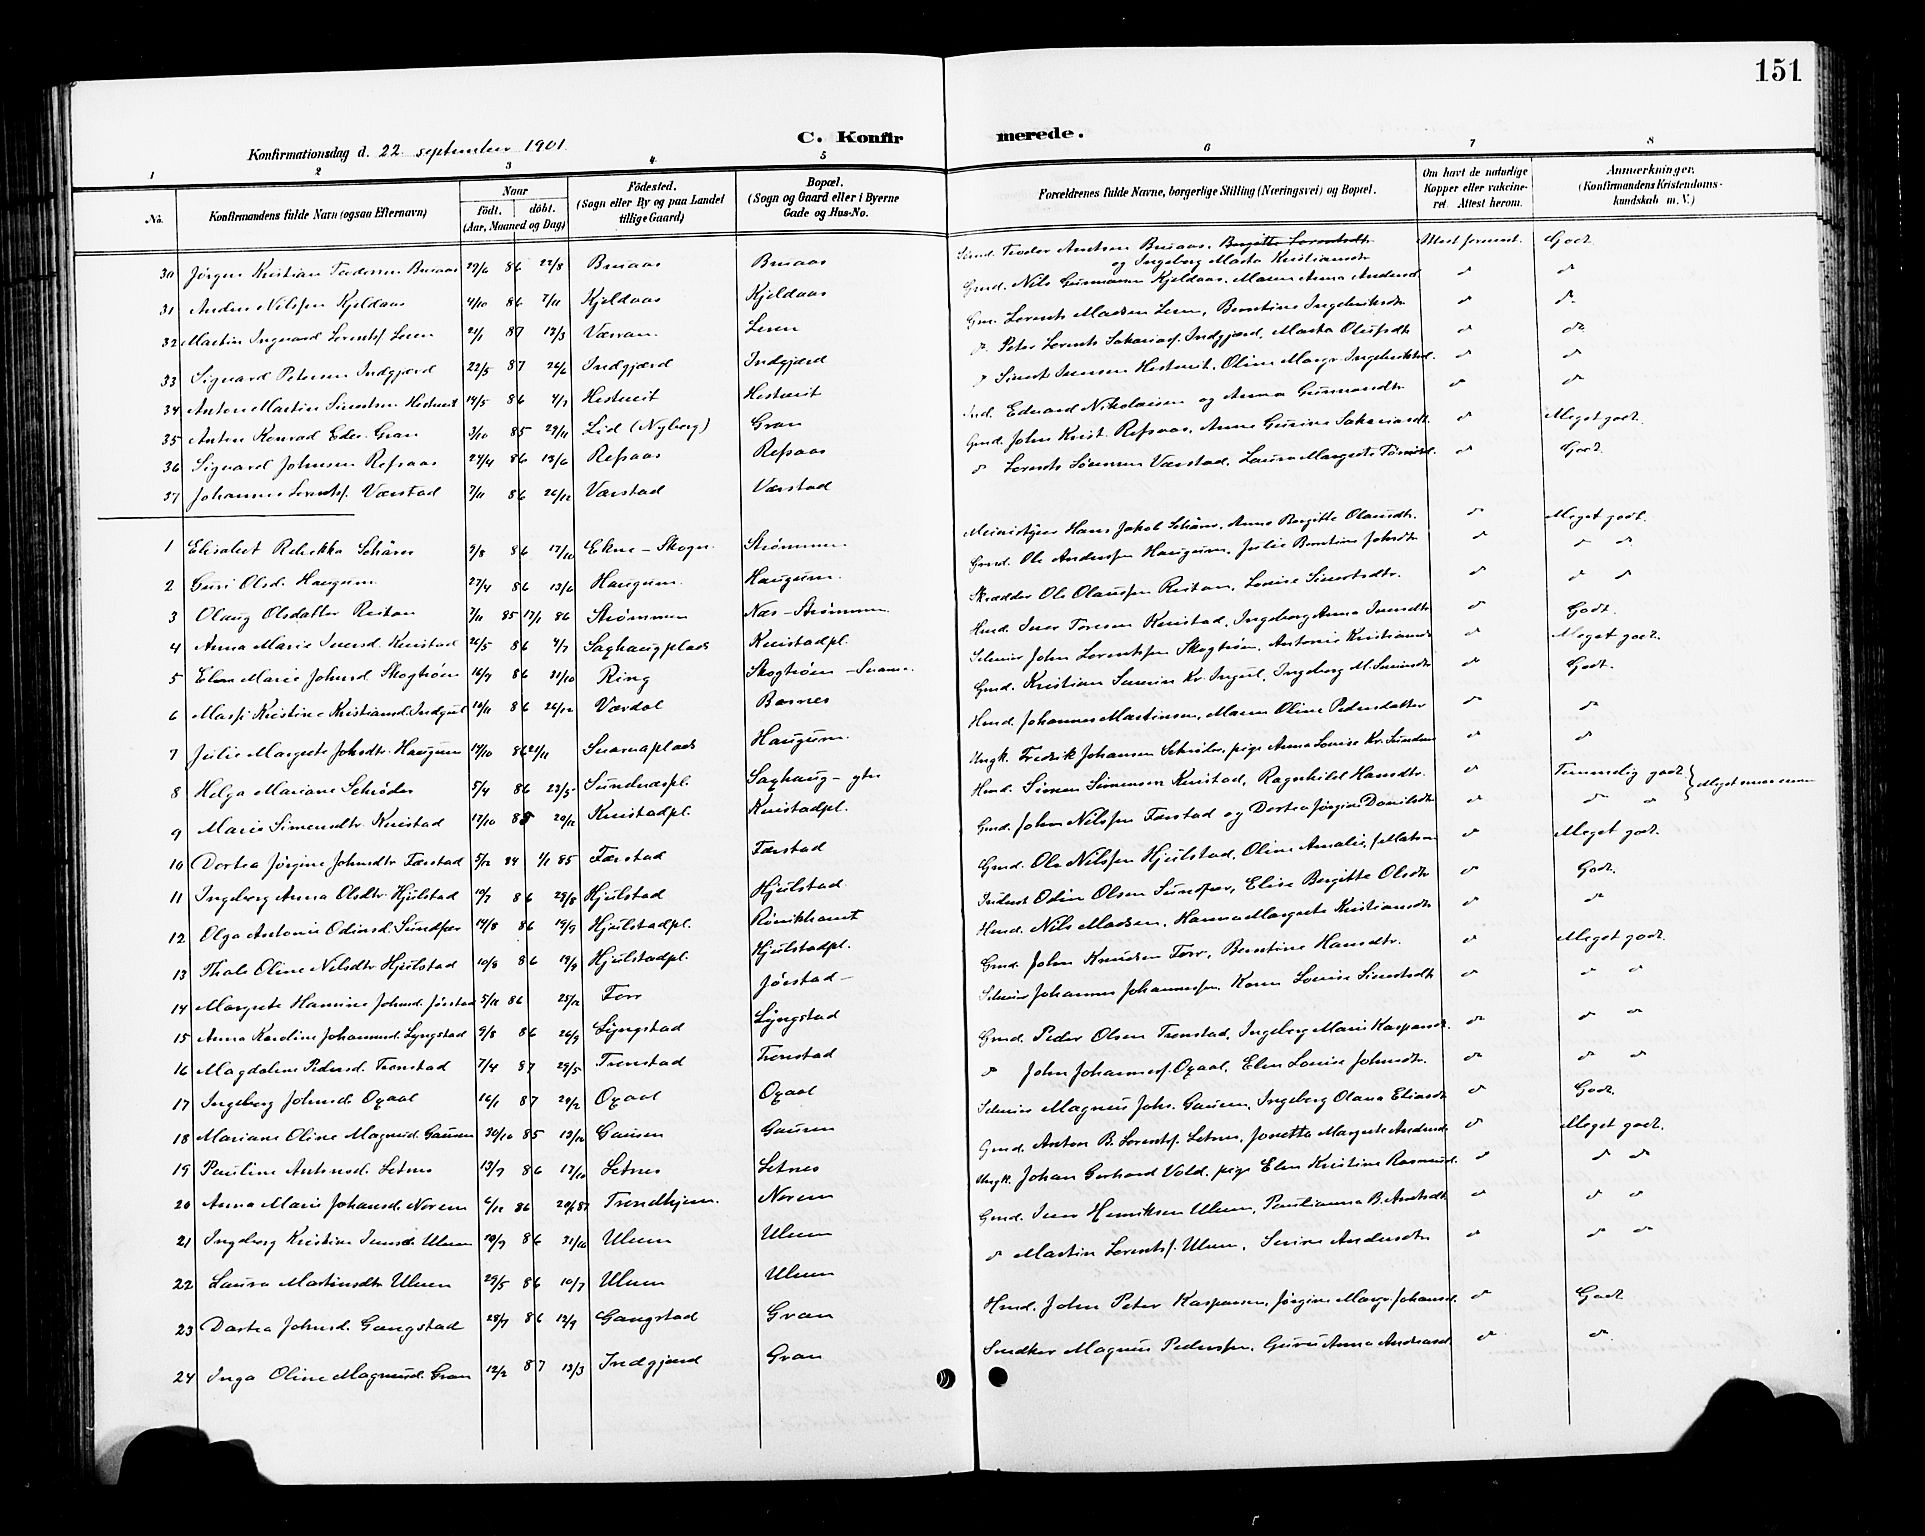 151
C. Konfirmerede.
Konfirmationsdag d. 22. september 1901.
1 2 3 4 5 6 7 8
No. Konfirmandens fulde Navn (ogsaa Efternavn) Naar født. døbt. (Aar, Maaned og Dag) Fødested. (Sogn eller By og paa Landet tillige Gaard) Bopæl. (Sogn og Gaard eller i Byerne Gade og Hus-No. Forældrenes fulde Navne, borgerlige Stilling (Næringsvei) og Bopæl. Om havt de naturlige Kopper eller vakcineret. Attest herom. Anmærkninger. (Konfirmandens Kristendomskundskab m. V.)
30 Jörgen Kristian Teodorsen Busaas 86 22/8 Busaas Busaas Teodor Arntsen Busaas, Bergitte Lorentsdtr. Attest forevist. Godt
og Ingeborg Marta Kristiansdtr
31 Anders Nilssen Kjeldaas 4/10 86 7/11 Kjeldaas Kjeldaas Gmd. Nils Gunnarsen Kjeldaas, Maren Anna Andersd. do do
32 Martin Ingvard Lorentsf. Leren 87 13/3 Værran Leren Lorents Madsen Leren, Berntine Ingebriktsdtr do do
33 Sigvard Petersen Indgjærd 22/5 87 26/6 Indgjærd Indgjærd do Peter Lorents Sakariasf. Indgjærd, Marta Olufsdtr do do
34 Anton Martin Sivertsen Hestveit 14/5 86 4/7 Hestveit Hestveit Sivert Iversen Hestveit, Oline Margr. Ingebriktsd. do do
35 Anton Konrad Edv. Gran 3/10 85 29/11 Lid (Nyborg) Gran Ind. Edvard Nikolaisen og Anna Gunnarsdtr do do
36 Sigvard Johnsen Refsaas 24/4 86 13/6 Refsaas Refsaas Gmd. John Krist. Refsaas, Anne Gurine Sakariasdtr do Meget godt.
37 Johannes Lorentsf. Værstad 7/11 86 26/12 Værstad Værstad do Lorents Sörensen Værstad, Laura Margrete do Godt
1 Elisabet Rebekka Schäre 86 17/10 Ekne - Skogn. Strømmen Hans Jakob Schäre, Anne Bergitte Olausdtr. do Meget godt.
2 Guri Olsd. Haugum 27/4 86 13/6 Haugum. Haugum. Gmd. Ole Andersen Haugum, Julie Berntine Johsdtr do do do
3 Olaug Olsdatter Restan 7/11 85 17/1 86 Strømmen Næs - Strømmen Skrædder Ole Olaussen Restan, Lovise Sivertsdtr. do do do
4 Anna Marie Iversd. Knistad 26/5 86 4/7 Saghaugplads Knistadpl. Hmd. Iver Toresen Knistad, Ingeborg Anna Iversdtr do Godt.
5 Elen Marie Johnsd. Skogtröen 16/9 86 31/10 Ring Skogtrøen - John Lorentssen Skogtröen, Antonie Kristiansdtr do Meget godt.
6 Kristine Kristiansd. 86 26/12 Værdal Barnes Gmd. Kristian Severin Kr. Ingeborg M. do Godt.
7 Julie Margrete Johsdtr. Haugum 14/10 86 21/11 Haugum. Hmd. Johannes Martinsen, Maren Oline Pedersdatter do do
8 Helga Mariane Schröder 5/4 86 23/5 Sundnæspl. Saghaug - ytre Ungk. Fredrik Johansen Schröder, pige Anna Lovise Kr. Sundnæs do do
9 Marie Simensdtr Knistad 17/10 85 20/12 Knistadpl. Knistadpl. Hmd. Simen Simensen Knistad, Ragnhild Hansdtr. do Temmelig godt.
10 Dortea Jørgine Johnsdtr Færstad 5/12 84 1/1 85 Færstad Færstad Gmd. John Nilssen Færstad og Dortea Jørgine Danielsdtr do do do
11 Ingeborg Anna Olsdtr. Hjulstad 10/7 86 29/8 Hjulstad Hjulstad Gmd. Ole Nilssen Hjulstad, Oline Amalie do Meget godt.
12 Olga Antonie Odinsd. Sundfær 14/8 86 19/9 Hjulstadpl. Odin Olsen Sundfær, Elise Bergitte Olsdtr do Godt.
13 Thale Oline Nilsdtr Hjulstad 10/8 86 19/9 Hjulstadpl. Hjulstadpl. Hmd. Nils Madsen, Hanna Margrete Kristiansdtr do do
14 Margrete Hannine Johnsd. Jørstad 5/11 86 25/12 Forr Jørstad - Gmd. John Knudsen Forr, Berntine Hansdtr. do Meget godt.
15 Anna Karoline Johannesd. Lyngstad 9/8 86 26/9 Lyngstad Lyngstad Johannes Johannessen, Karen Lovise Sivertsdtr do do do
16 Magdalene Pedersd. Tronstad 7/4 87 29/5 Tronstad Tronstad Gmd. Peder Olsen Tronstad, Ingeborg Marie Kaspersdtr do do do
17 Ingeborg Johnsd. Oxaal 16/1 87 20/2 Oxaal Oxaal do John Johannesf. Oxaal, Elen Lovise Johnsdtr. do do do
18 Mariane Oline Magnusd. Gausen 30/10 85 13/12 Gausen Gausen Magnus Johs. Gausen, Ingeborg Olana Eliasdtr do Godt.
19 Pauline Antonsd. Letnes 13/7 86 17/10 Letnes Letnes Gmd. Anton B. Lorentsf. Letnes, Jonetta Margrete Andersd. do Meget godt.
20 Anna Marie Johansd. Norem 6/12 86 87 Trondhjem. Norem Ungk. Johan Gerhard Vold. pige Elen Kristine Rasmusd. do do do
21 Ingeborg Kristine Iversd. Ulven 10/9 86 31/10 Ulven Ulven Gmd. Iver Henriksen Ulven, Paulianna B. Arntsdtr do do do
22 Laura Martinsdtr Ulven 29/5 86 10/7 Ulven Ulven do Martin Lorentsf. Ulven, Andersdtr do do do
23 Dortea Johnsd. Gangstad 86 12/9 Gangstad Gran Hmd. John Peter Kaspersen, Jørgine Margr. Johansd. do Godt
24 Inga Oline Magnusd. Gran 12/2 87 13/3 Indgjærd Gran Magnus Pederssen, Anna do do